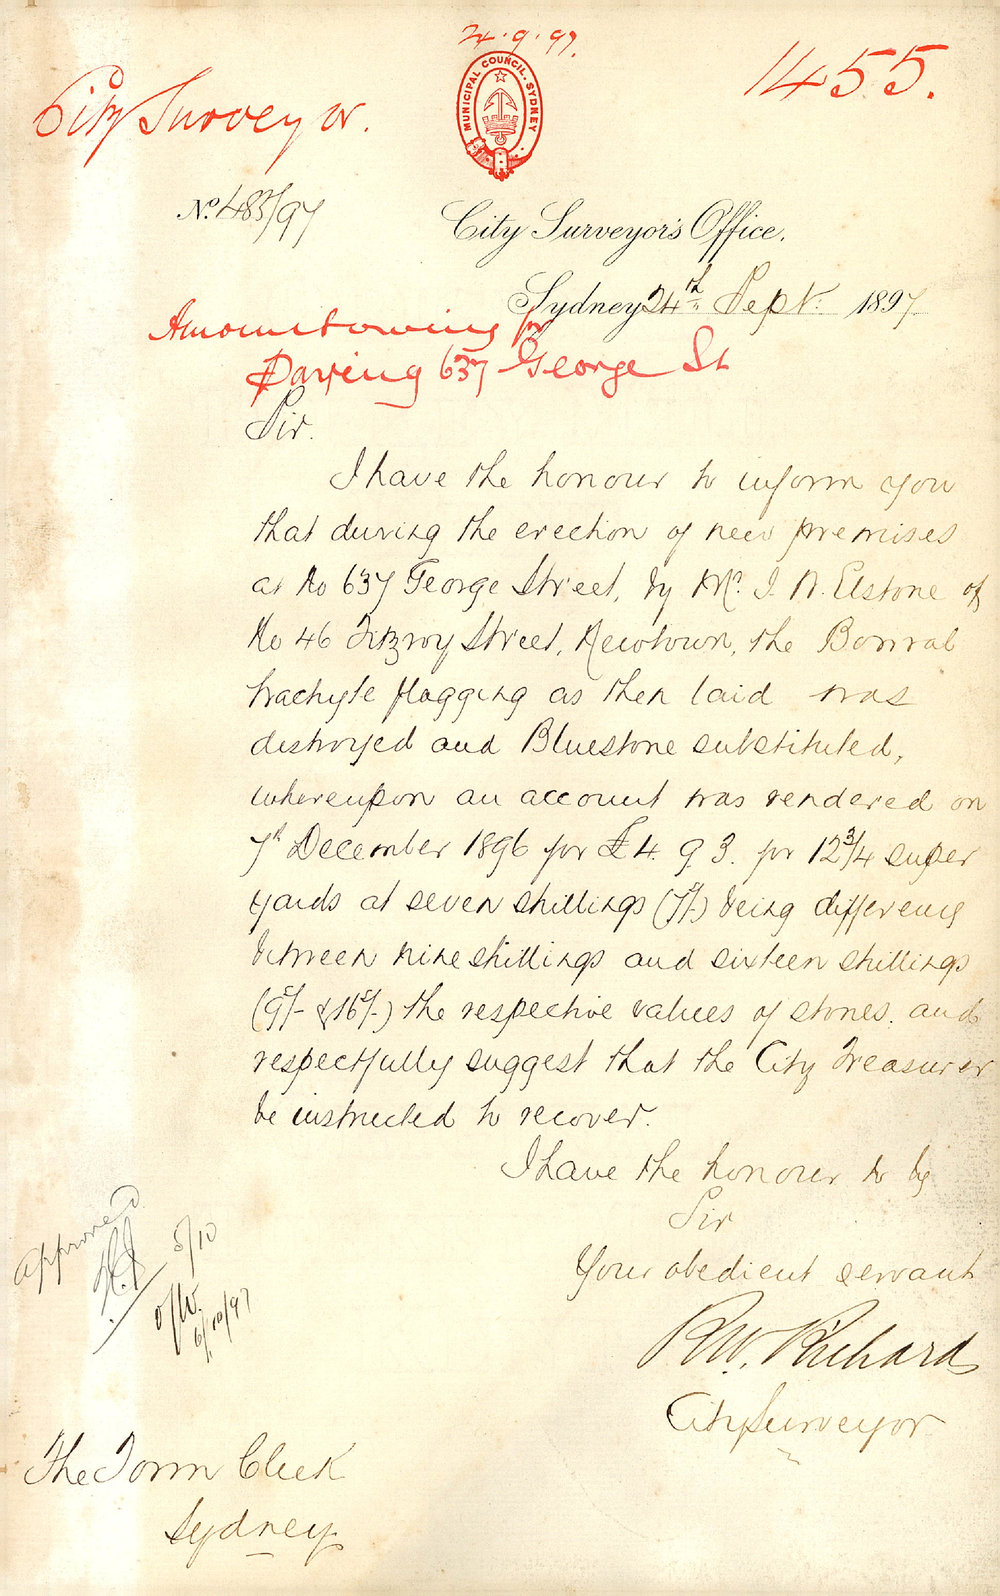 24.9.97.
MUNICIPAL COUNCIL. SYDNEY
1455.
City Surveyor.
No. 483/97
City Surveyor's Office.
Sydney 24th Sept. 1897.
Amount owing for
Paving 637 George St
Sir.
I have the honour to inform you
that during the erection of new premises
at No 637 George Street, by Mr. J. N. Elstone of
No 46 Fitzroy Street, Newtown, the Bowral
trachyte flagging as then laid was
destroyed and Bluestone substituted,
whereupon an account was rendered on
7th December 1896 for £4. 9 3. for 12 3/4 super
yards at seven shillings (7/-) being difference
between nine shillings and sixteen shillings
(9/- & 16/-) the respective values of stones. and
respectfully suggest that the City Treasurer
be instructed to recover.
I have the honour to be
Sir
Your obedient servant
R.W. Richards
City Surveyor
approved
5/10
6/10/97
The Town Clerk
Sydney